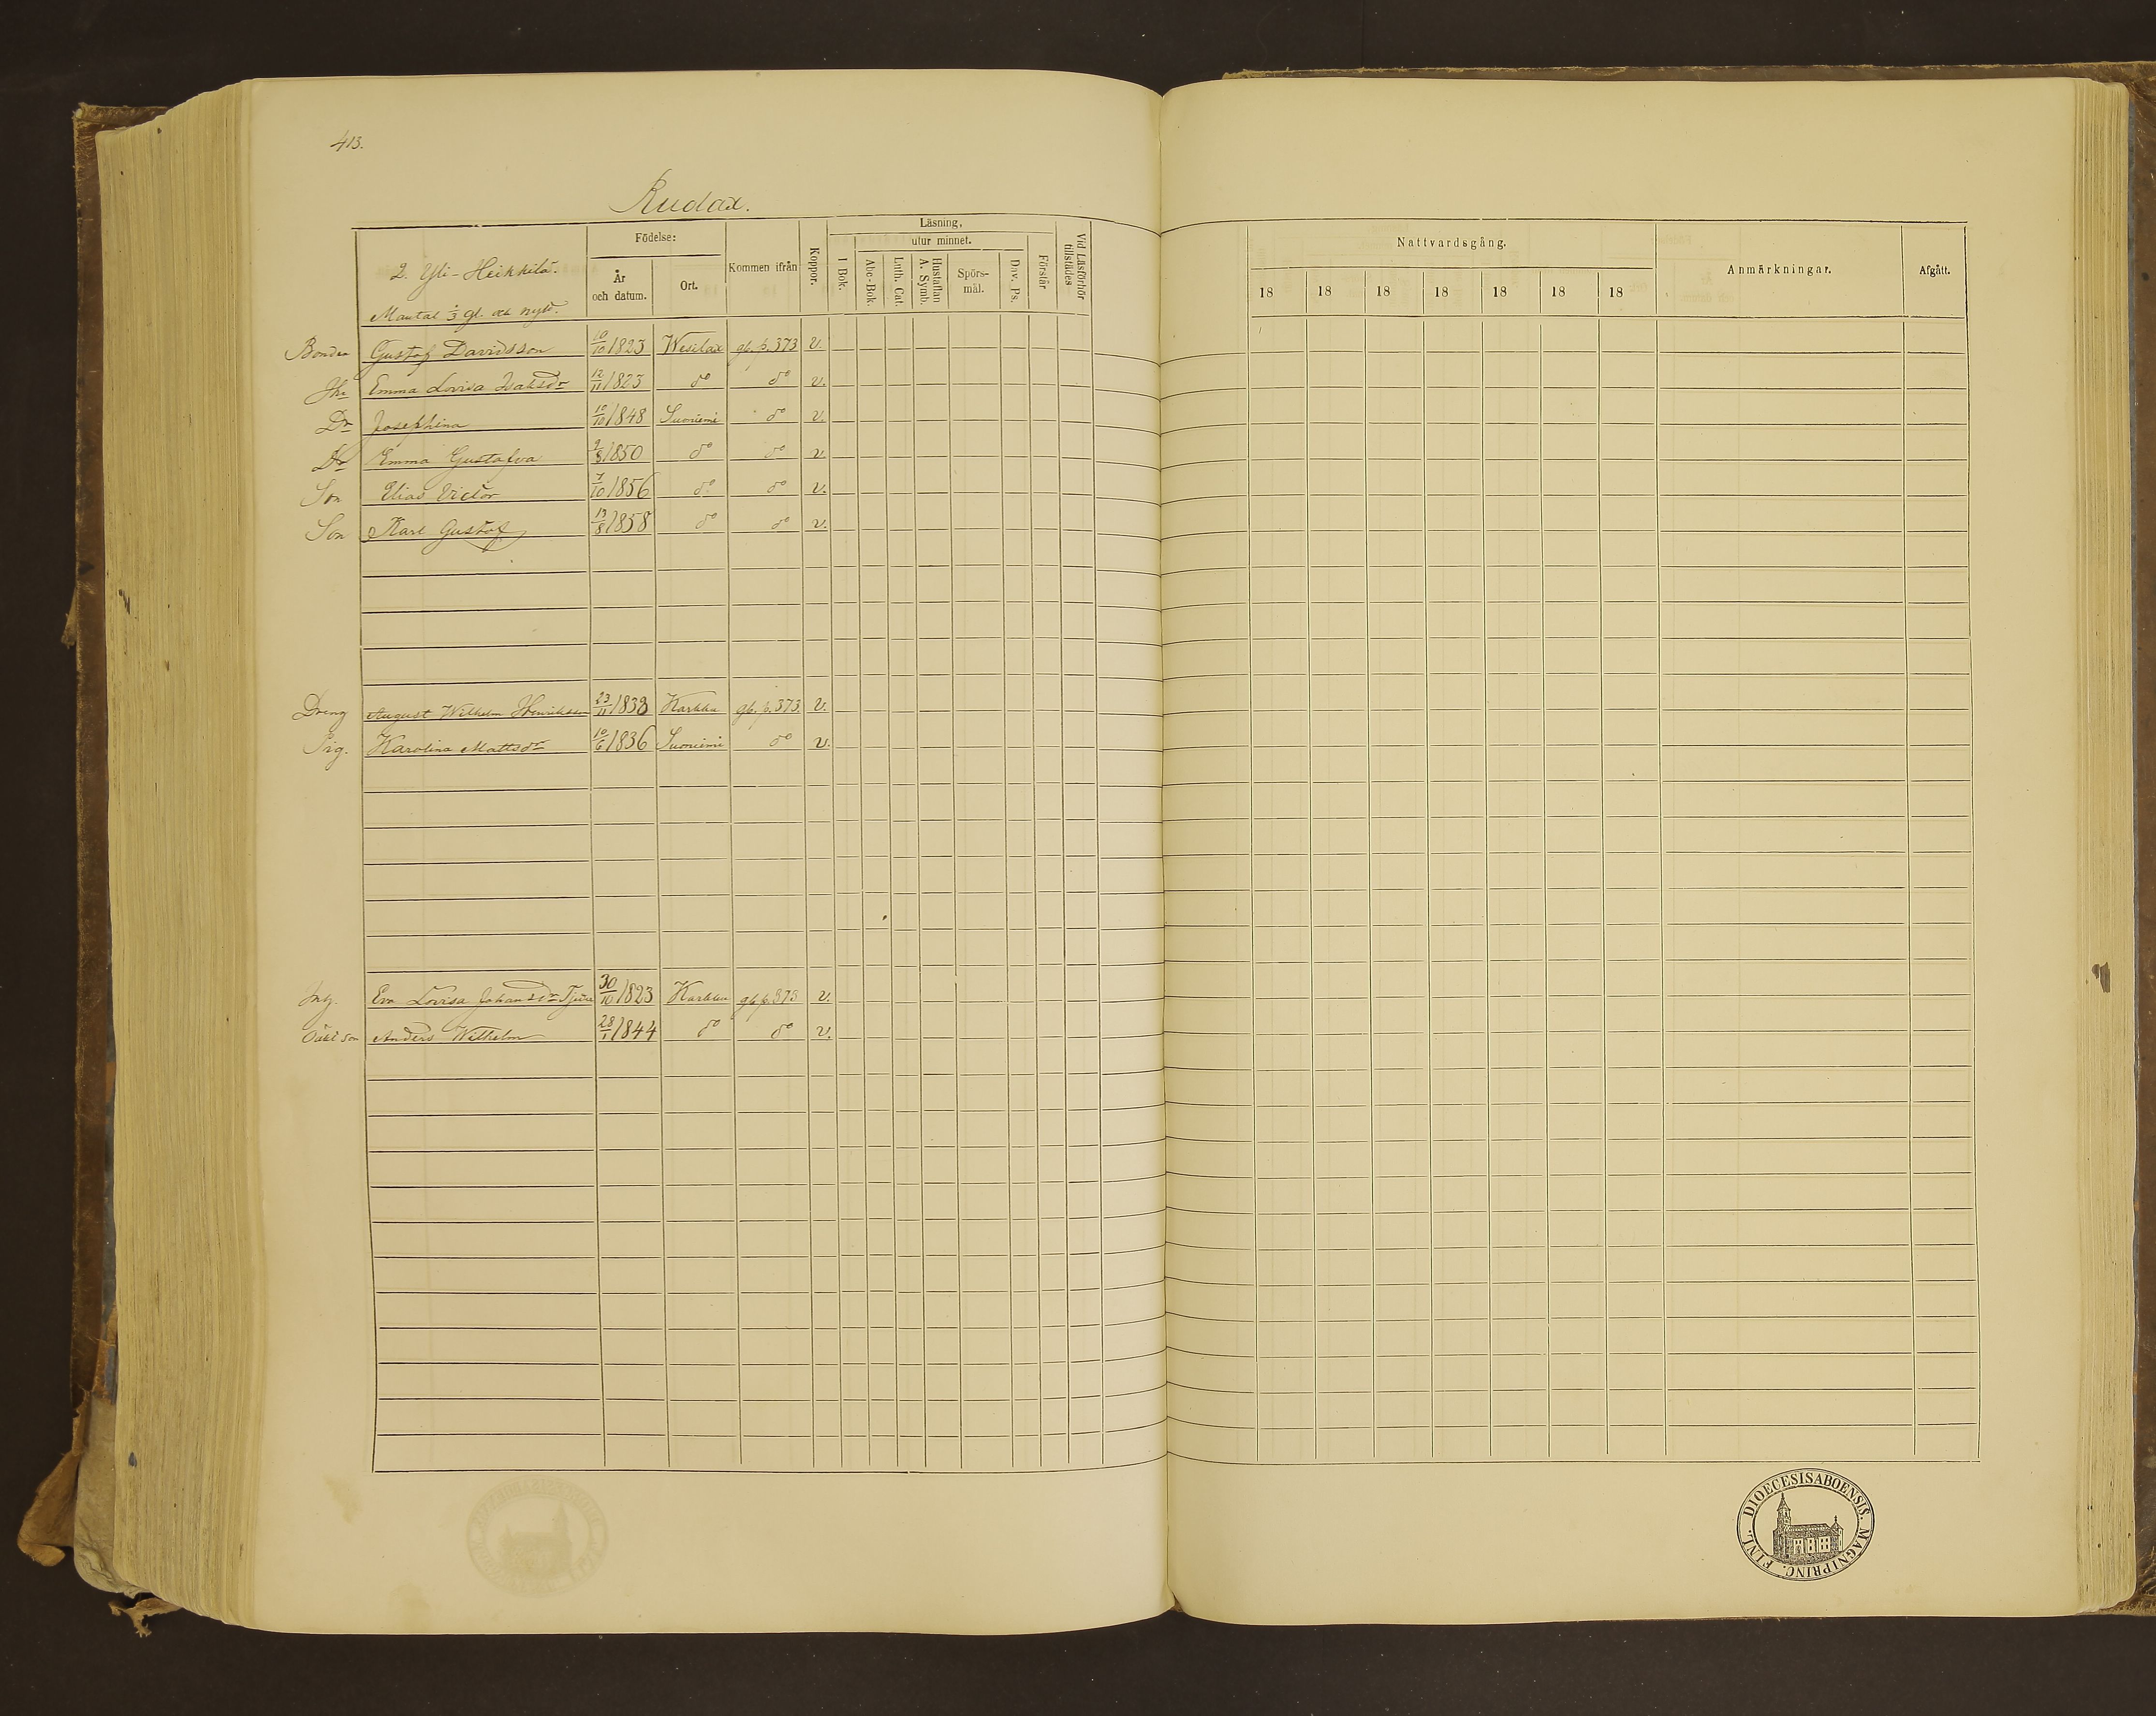 413.
Rudax.
2. Yli-Heikkilä.
Mantal 1/3 gl. och nytt.
Födelse:
År och datum.
Ort.
Kommen ifrån
Koppor.
Läsning,
utur minnet.
I Bok.
Abc-Bok.
Luth. Cat.
Hustaflan A. Symb.
Spörs-mål.
Dav. Ps.
Förstår
Vid Läsförhör tillstädes
Nattvardsgång.
18 18 18 18 18 18 18
Anmärkningar.
Afgått.
Bonden Gustaf Davidsson 10/10 1823 Wesilax gb. p. 373 v.
Hu Emma Lovisa Isaksdr 12/11 1823 do do v.
Dr Josephina 10/10 1848 Suoniemi do v.
Dr Emma Gustafva 2/3 1850 do do v.
Son Elias Victor 7/10 1856 do do v.
Son Karl Gustaf 13/8 1858 do do v.
Dreng August Wilhelm Henriksson 23/11 1838 Karkku gb. p. 373 v.
Pig. Karolina Mattsdr 10/6 1836 Suoniemi do v.
Inh. Eva Lovisa Johansdr 30/10 1823 Karkku gb. p. 373 v.
Oäkt son Anders Wilhelm 28/1 1844 do do v.
FINL. DIOECESIS ABOENSIS. MAGNI PRINC.